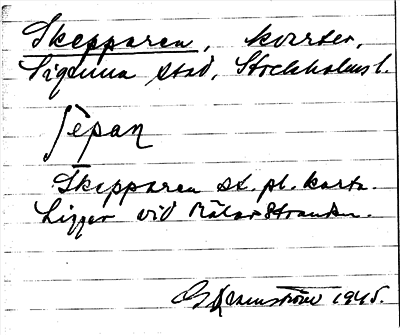 Skepparen, kvarter,
Sigtuna stad, Stockholms l.
Skepparen st. pl. karta.
Ligger vid Mälarstranden.
1945.